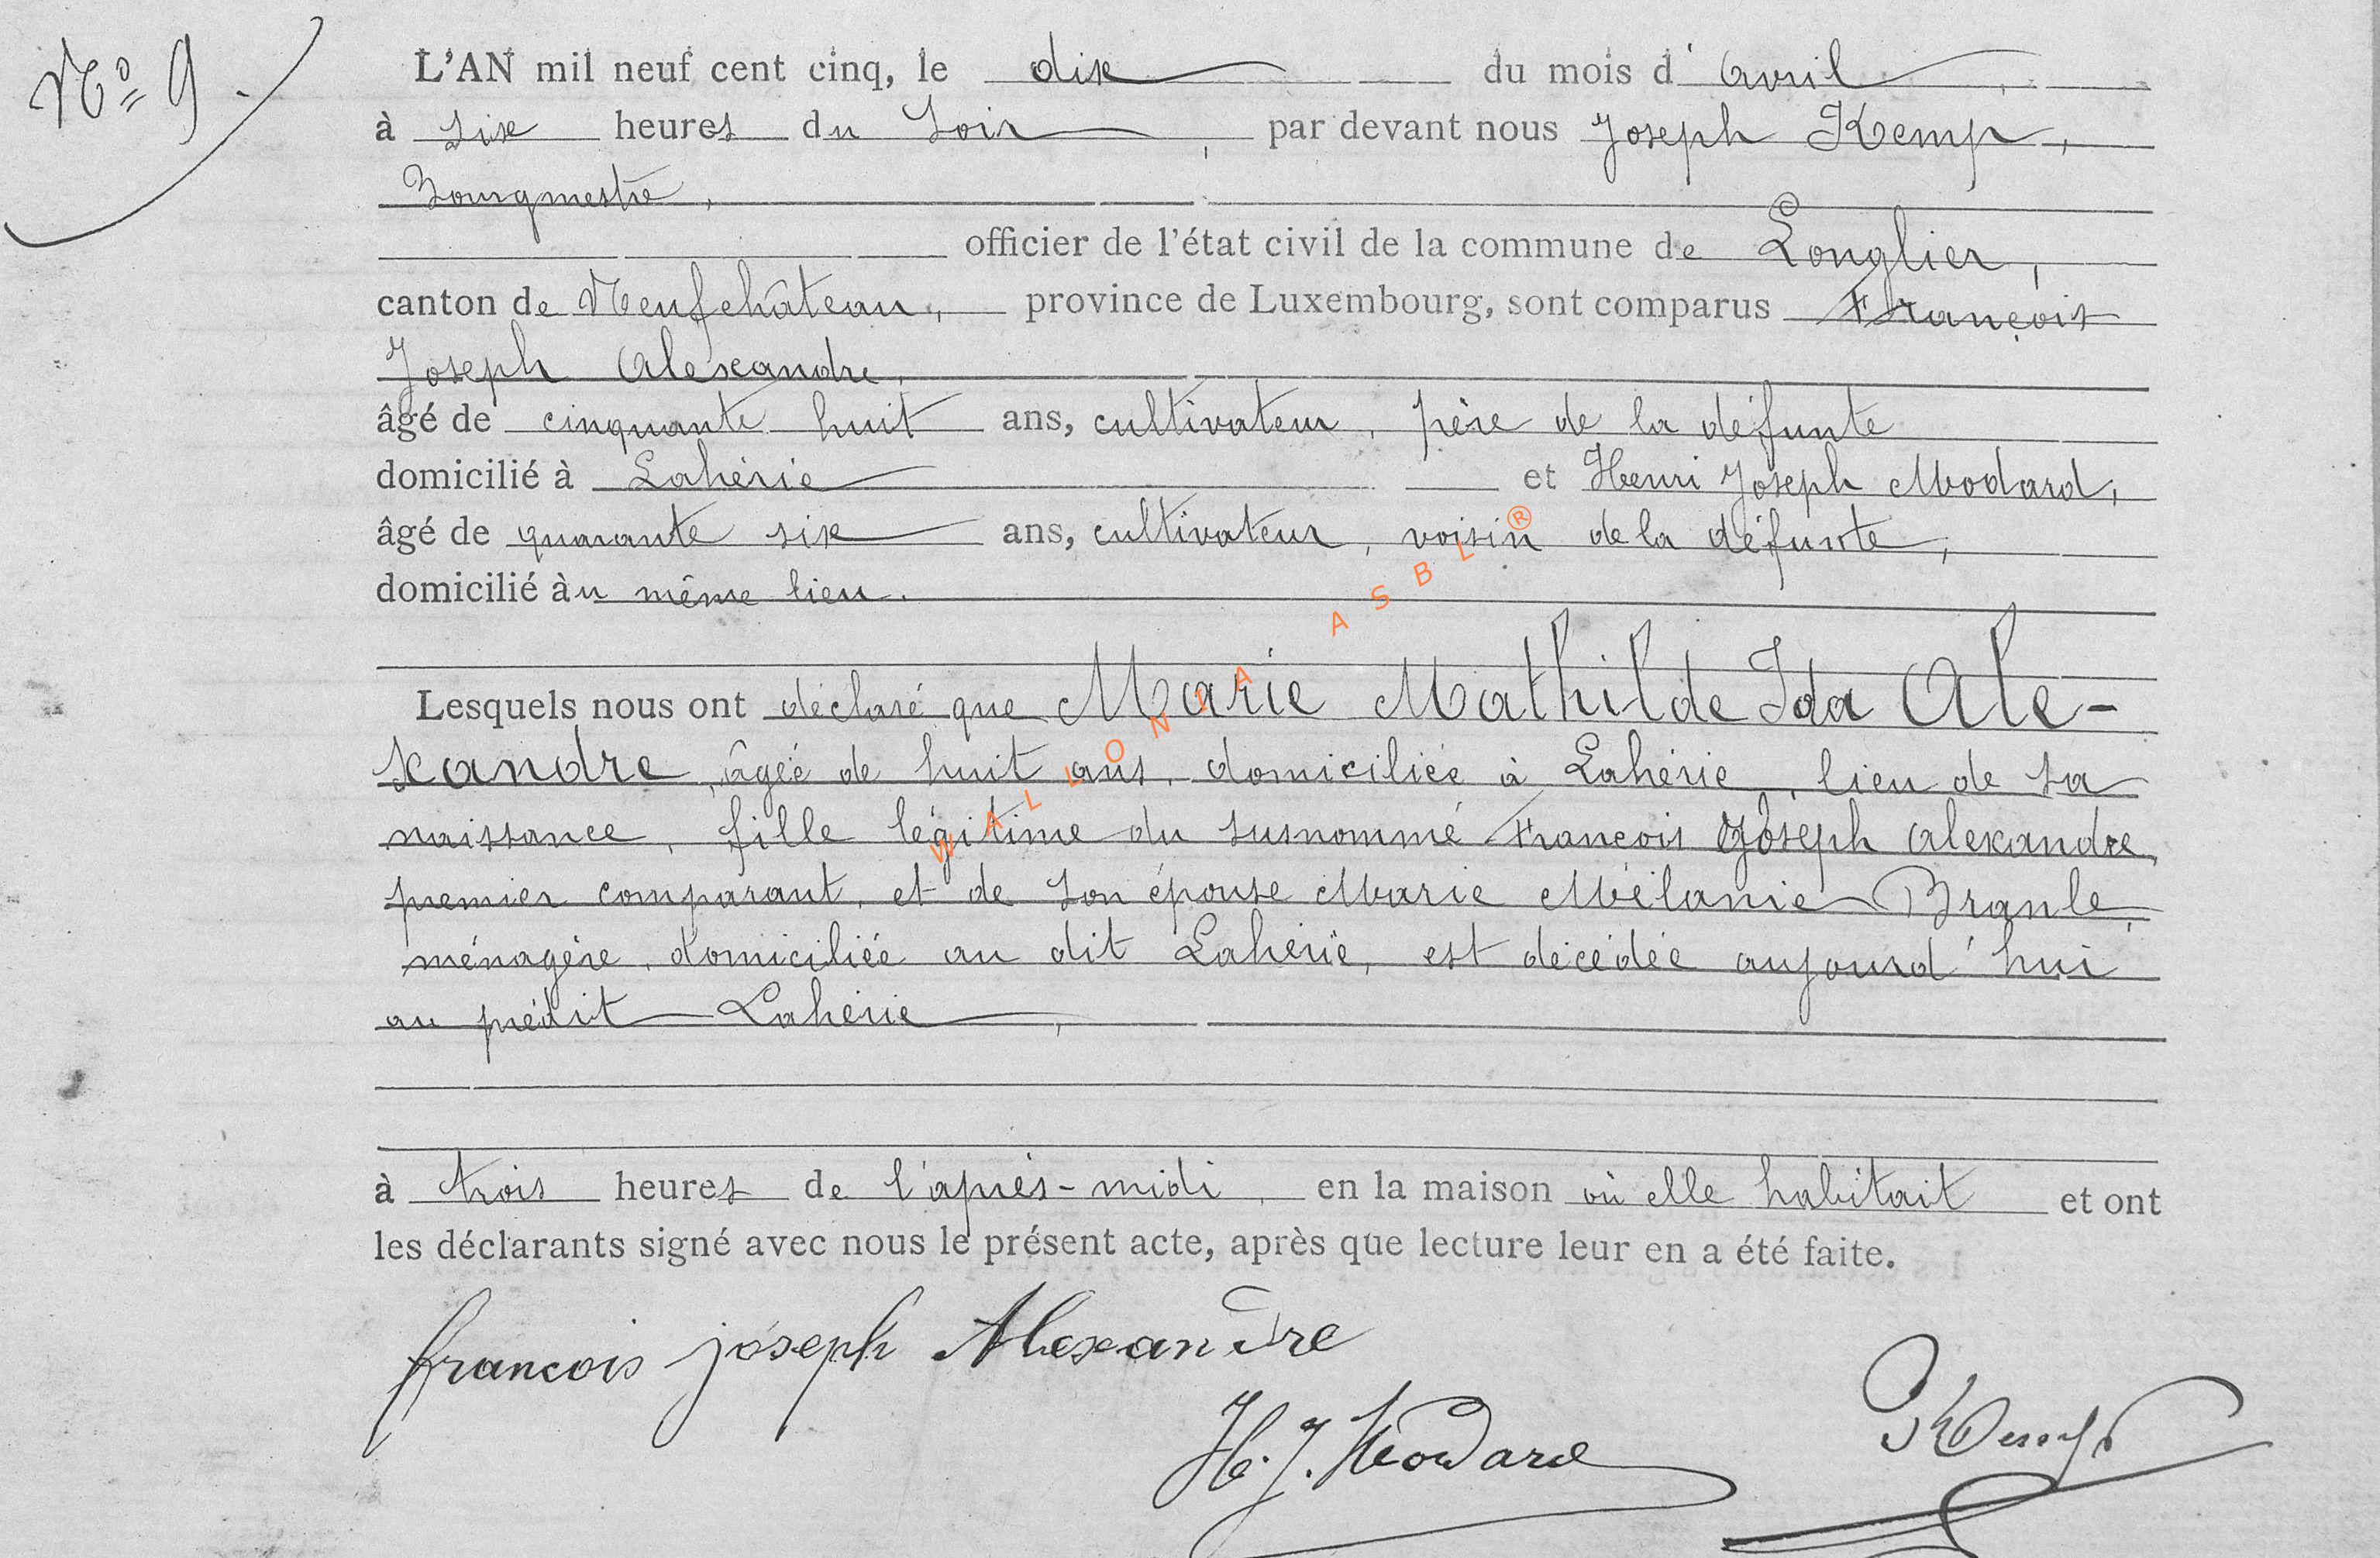 Nº 9.
L'AN mil neuf cent cinq, le dix du mois d'avril,
à six heures du soir, par devant nous Joseph Kemp,
Bourgmestre,
officier de l'état civil de la commune de Longlier,
canton de Neufchâteau, province de Luxembourg, sont comparus François
Joseph Alexandre,
âgé de cinquante huit ans, cultivateur, père de la défunte
domicilié à Lahérie et Henri Joseph Modard,
âgé de quarante six ans, cultivateur, voisin de la défunte,
domicilié au même lieu.
Lesquels nous ont déclaré que Marie Mathilde Ida Ale-
xandre, âgée de huit ans, domiciliée à Lahérie, lieu de sa
naissance, fille légitime du susnommé François Joseph Alexandre,
premier comparant, et de son épouse Marie Mélanie Branle,
ménagère, domiciliée au dit Lahérie, est décédée aujourd'hui
au prédit Lahérie,
à trois heures de l'après-midi, en la maison où elle habitait et ont
les déclarants signé avec nous le présent acte, après que lecture leur en a été faite.
francois joseph Alexandre
H. J. Modard
Kemp
WALLONIA ASBL®